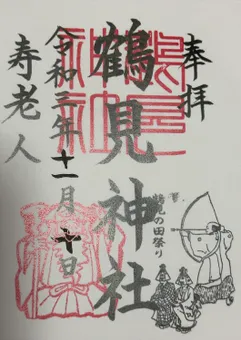 奉拝
鶴見神社
鶴見の田祭り
令和三年十一月十日
寿老人